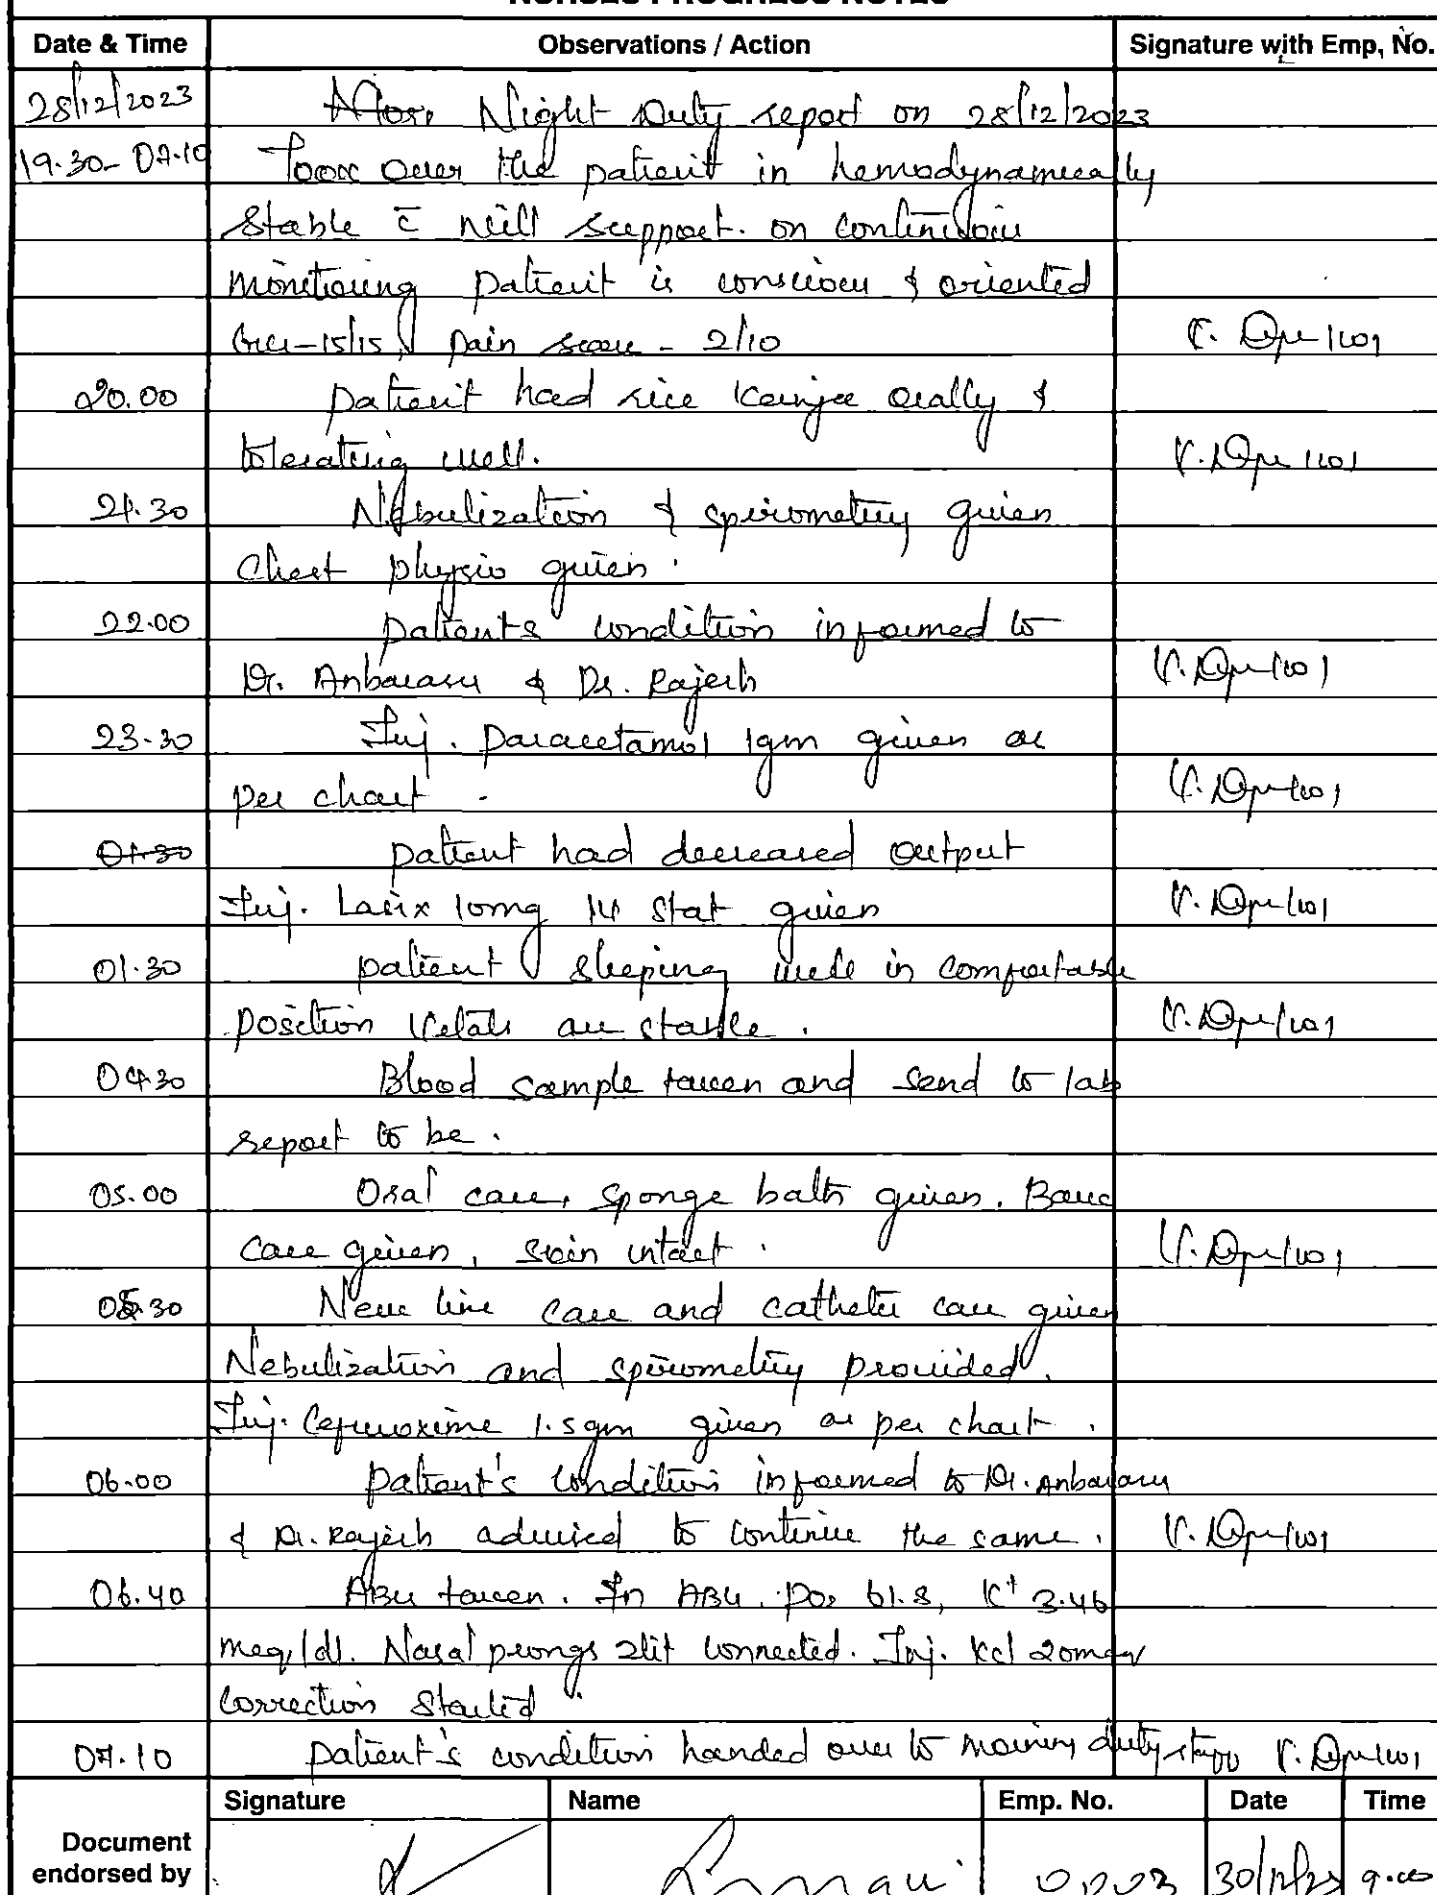 NURSES PROGRESS NOTES
Date & Time Observations / Action Signature with Emp, No.
28/12/2023 Night Duty report on 28/12/2023
19.30- 07.10 Toox over the patient in hemodynamically
stable c̄ nill support. on continuous
monitoring patient is conscious & oriented
GCS-15/15, pain score - 2/10
20.00 patient had rice kanjee orally &
tolerating well.
21.30 Nebulization & spirometry given
Chest physio given.
22.00 patients condition informed to
Dr. Anbarasu & Dr. Rajesh
23.30 Inj. paracetamol 1gm given as
per chart.
01.30 patient had decreased output
Inj. Lasix 10mg IV stat given
01.30 patient sleeping well in comfortable
position Vitals are stable.
04.30 Blood sample taken and send to lab
report to be.
05.00 Oral care, sponge bath given. Back
care given, skin intact.
05.30 New line care and catheter care given
Nebulization and spirometry provided.
Inj. Cefuroxime 1.5gm given as per chart.
06.00 patient's condition informed to Dr. Anbarasu
& Dr. Rajesh advised to continue the same.
06.40 ABG taken. In ABG. po2 61.8, K+ 3.46
meq/dl. Nasal prongs 2lit connected. Inj. Kcl 20meq
correction started.
07.10 patient's condition handed over to morning duty staff
Signature Name Emp. No. Date Time
Document
endorsed by 30/12/23 9.00